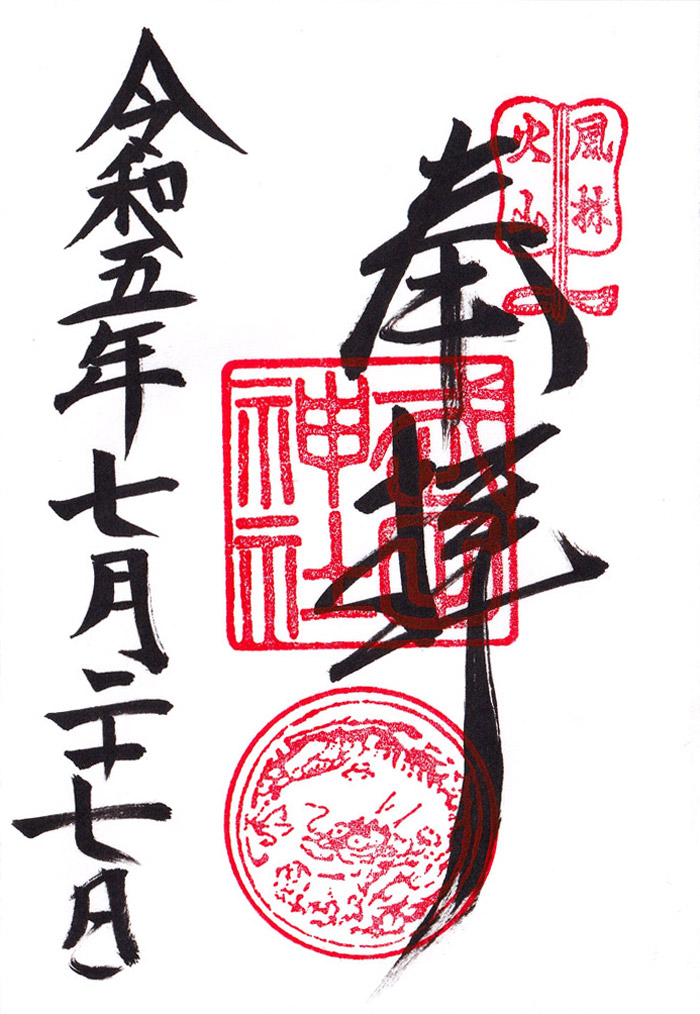 風林
火山
奉拝
武田
神社
令和五年七月二十七日